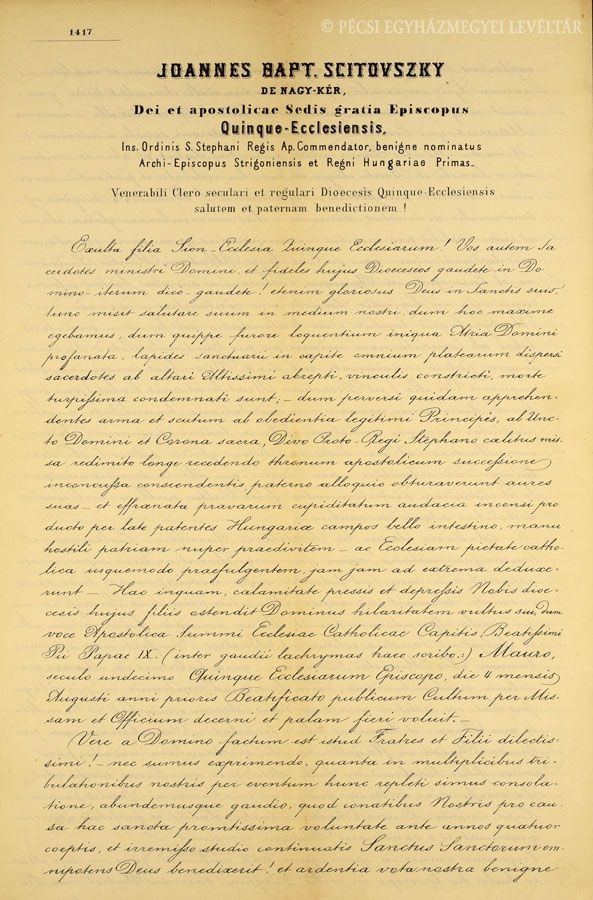 © PÉCSI EGYHÁZMEGYEI LEVÉLTÁR
1417.
JOANNES BAPT. SCITOVSZKY
DE NAGY-KÉR,
Dei et apostolicae Sedis gratia Episcopus
Quinque-Ecclesiensis,
Ins. Ordinis S. Stephani Regis Ap. Commendator, benigne nominatus
Archi-Episcopus Strigoniensis et Regni Hungariae Primas.
Venerabili Clero seculari et regulari Dioecesis Quinque-Ecclesiensis
salutem et paternam benedictionem!
Exulta filia Sion-Ecclesia Quinque Ecclesiarum! Vos autem Sa
cerdotes ministri Domini, et fideles hujus Dioeceseos gaudete in Do-
mino - iterum dico - gaudete! etenim gloriosus Deus in Sanctis suis,
tunc misit salutare suum in medium nostri, dum hoc maxime
egebamus, dum quippe furore loquentium iniqua Atria Domini
profanata, lapides sanctuarii in capite omnium platearum dispersi
sacerdotes ab altari Altissimi abrepti, vinculis constricti, morte
turpissima condemnati sunt, - dum perversi quidam apprehen-
dentes arma et scutum ab obedientia legitimi Principis, ab Unc-
to Domini et Corona sacra, Divo Proto-Regi Stephano caelitus mis-
sa redimito longe recedendo thronum apostolicum successione
inconcussa conscendentis, paterno alloquio obturaverunt aures
suas - et effraenata pravarum cupiditatum audacia incensi pro
ducto per late patentes Hungariae campos bello intestino, manu
hostili patriam nuper praedivitem - ac Ecclesiam pietate catho-
lica usquemodo praefulgentem, jam jam ad extrema deduxe-
runt - Hac inquam, calamitate pressis et depressis Nobis dioe-
cesis hujus filiis ostendit Dominus hilaritatem vultus sui, dum
voce Apostolica Summi Ecclesiae Catholicae Capitis Beatissimi
Pii Papae IX. (inter gaudii lachrymas haec scribo:) Mauro,
seculo undecimo Quinque Ecclesiarum Episcopo, die 4 mensis
Augusti anni prioris Beatificato publicum Cultum per Mis-
sam et Officium decerni et palam fieri voluit. -
Vere a Domino factum est istud Fratres et Filii dilectis-
simi! - nec sumus exprimendo, quanta in multiplicibus tri-
bulationibus nostris per eventum hunc repleti simus consola-
tione, abundemusque gaudio, quod conatibus Nostris pro cau-
sa hac sancta promtissima voluntate ante annos quatuor
coeptis, et irremisso studio continuatis Sanctus Sanctorum om-
nipotens Deus benedixerit! et ardentia vota nostra benigne